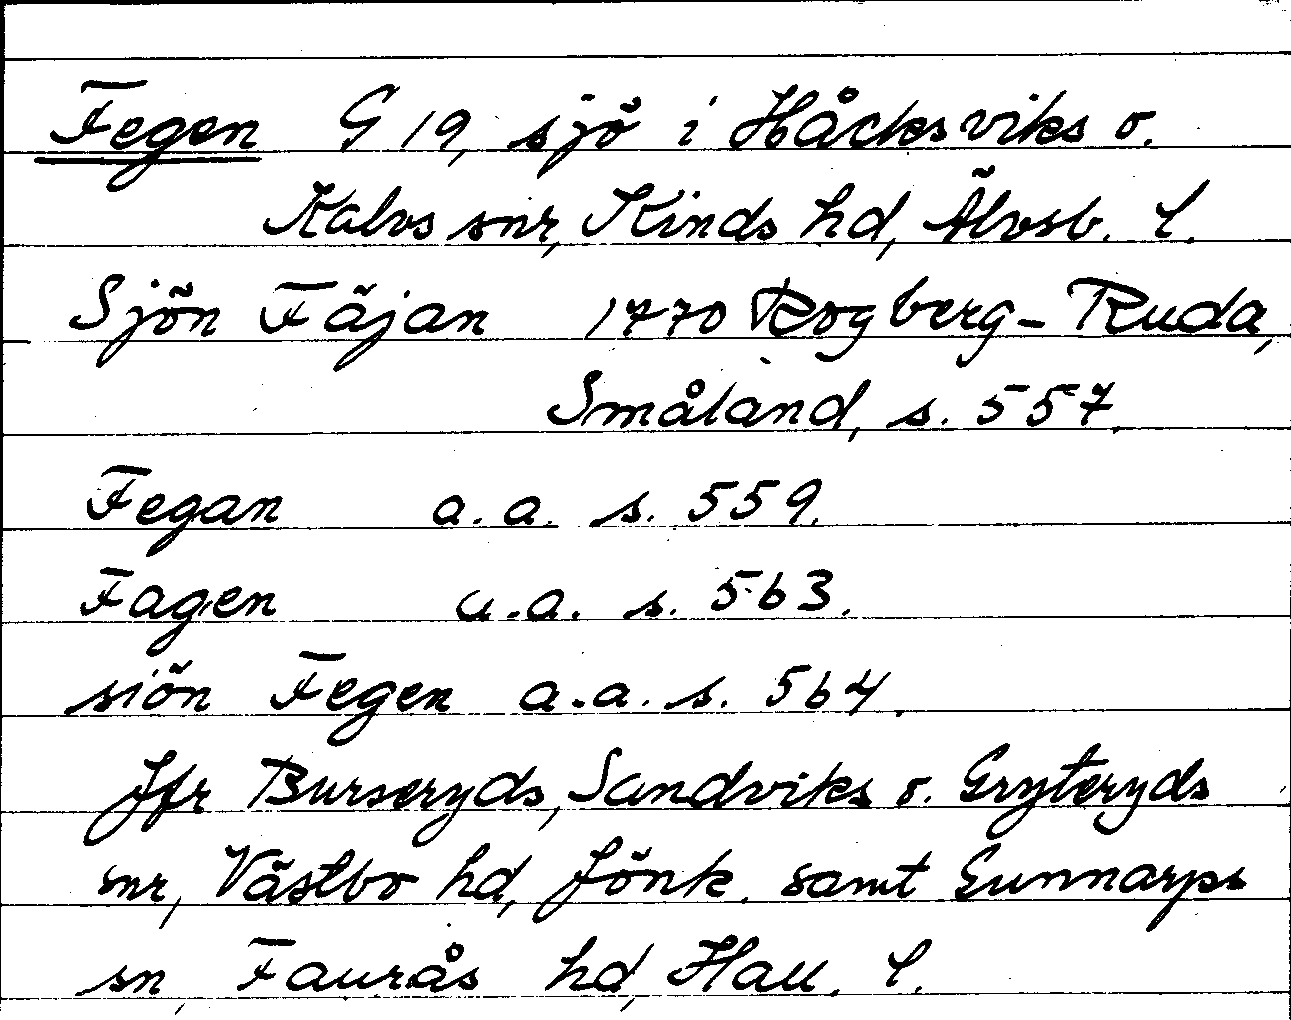 Fegen G 19, sjö i Håcksviks o.
Kalvs snr, Kinds hd, Älvsb. l.
Sjön Fäjan 1770 Rogberg-Ruda,
Småland, s. 557.
Fegan a.a. s. 559.
Fagen a.a. s. 563.
siön Fegen a.a. s. 564.
Jfr Burseryds, Sandviks o. Gryteryds
snr, Västbo hd, Jönk. samt Gunnarps
sn, Faurås hd, Hall. l.